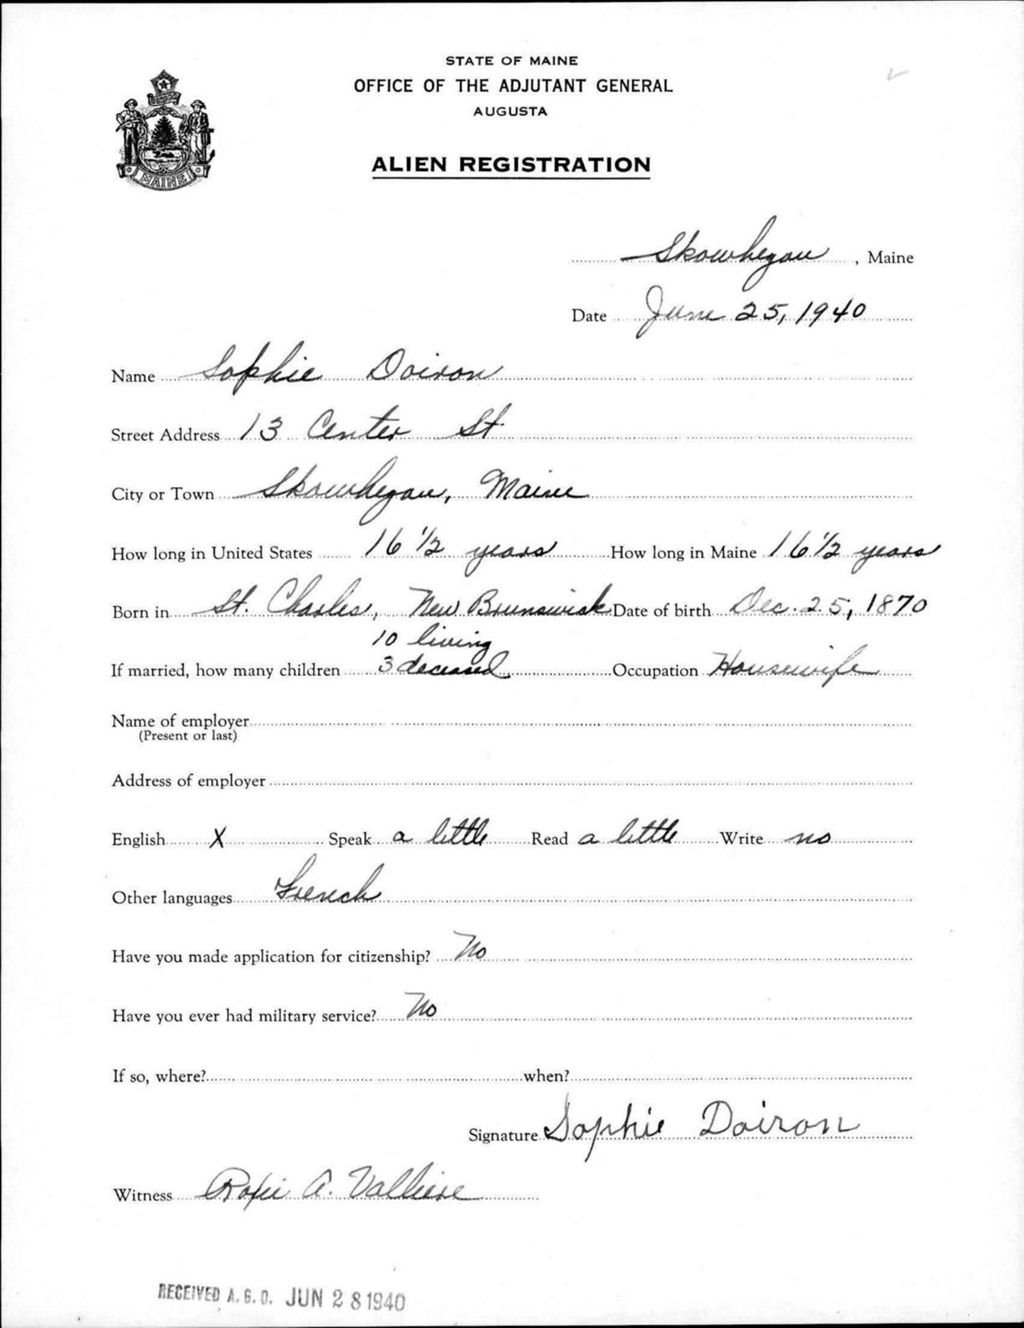 STATE OF MAINE
OFFICE OF THE ADJUTANT GENERAL
AUGUSTA
ALIEN REGISTRATION
MAINE
Skowhegan, Maine
Date June 25, 1940
Name Sophie Doiron
Street Address 13 Center St
City or Town Skowhegan, Maine
How long in United States 16 1/2 years How long in Maine 16 1/2 years
Born in St. Charles, New Brunswick Date of birth Dec. 25, 1870
10 living
If married, how many children 3 deceased Occupation Housewife
Name of employer
(Present or last)
Address of employer
English X Speak a little Read a little Write no
Other languages French
Have you made application for citizenship? No
Have you ever had military service? No
If so, where? when?
Signature Sophie Doiron
Witness A. Valliere
RECEIVED A.G.O. JUN 28 1940